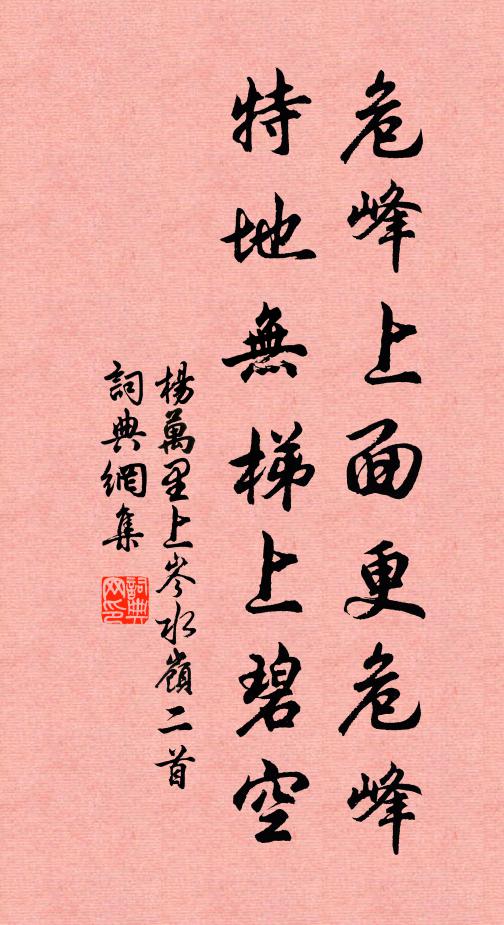 危峰上面更危峰
特地無梯上碧空
楊萬里上岑水嶺二首
詞典網集
詞典网印